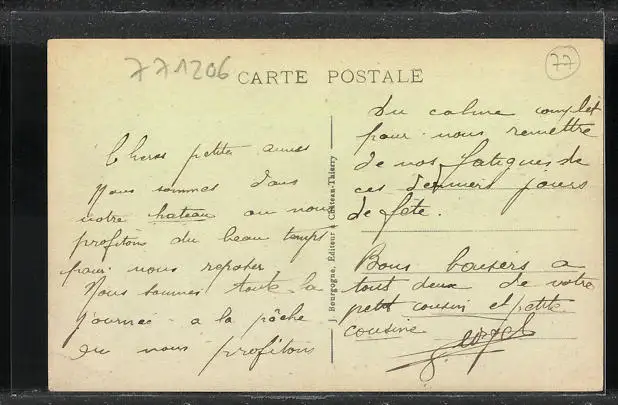 771206
77
CARTE POSTALE
Chers petits amis
Nous sommes dans
notre hateau ou nous
profitons du beau temps
pour nous reposer
Nous sommes toute la
journée a la pêche
ou nous profitons
J. Bourgogne, Éditeur à Château-Thierry
Du calme complet
pour nous remettre
de nos fatigues de
ces derniers jours
de fête.
Bons baisers a
tout deux de votre
petit cousin et petite
cousine